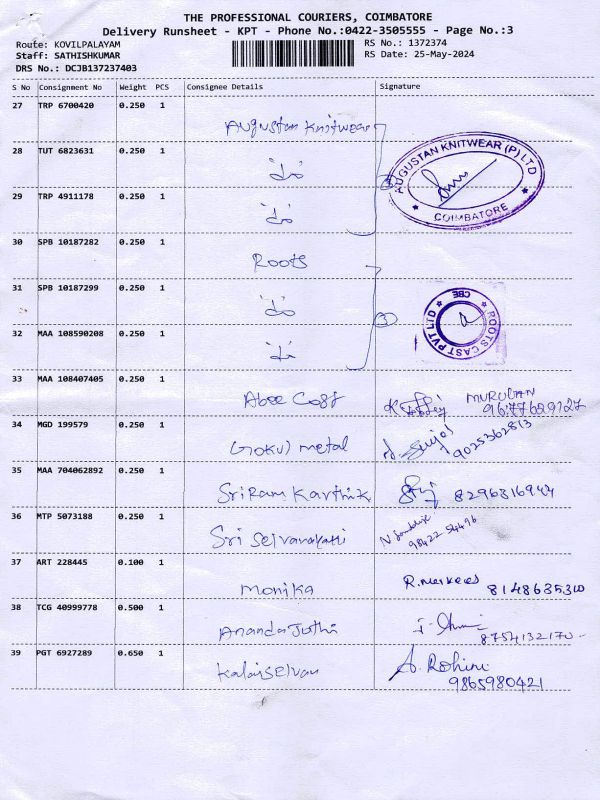 THE PROFESSIONAL COURIERS, COIMBATORE
Delivery Runsheet - KPT - Phone No.:0422-3505555 - Page No.:3
Route: KOVILPALAYAM RS No.: 1372374
Staff: SATHISHKUMAR RS Date: 25-May-2024
DRS No.: DCJB137237403
S No Consignment No Weight PCS Consignee Details Signature
27 TRP 6700420 0.250 1
Augustan Knitwear
AUGUSTAN KNITWEAR (P) LTD
COIMBATORE
28 TUT 6823631 0.250 1
29 TRP 4911178 0.250 1
30 SPB 10187282 0.250 1
Roots
31 SPB 10187299 0.250 1
3
ROOTS CAST PVT LTD
CBE
32 MAA 108590208 0.250 1
33 MAA 108407405 0.250 1
MURUGAN
34 MGD 199579 0.250 1
Gokul metal
9025362813
35 MAA 704062892 0.250 1
SriRam Karthik
36 MTP 5073188 0.250 1
Sri
98422 54496
37 ART 228445 0.100 1
Monika 8148635310
38 TCG 40999778 0.500 1
8754132170
39 PGT 6927289 0.650 1
Kalaiselvan A. Rohini
9865980421